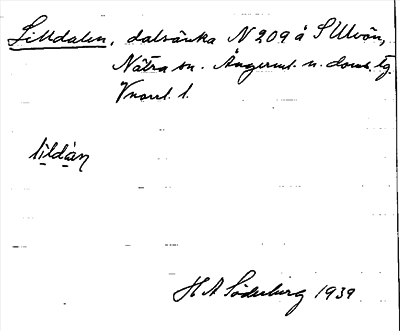 Lilldalen, dalsänka N 209 å S Ulvön,
Nätra sn. Ångerml. n. doms. tg.
lildàn
H A Söderberg 1939